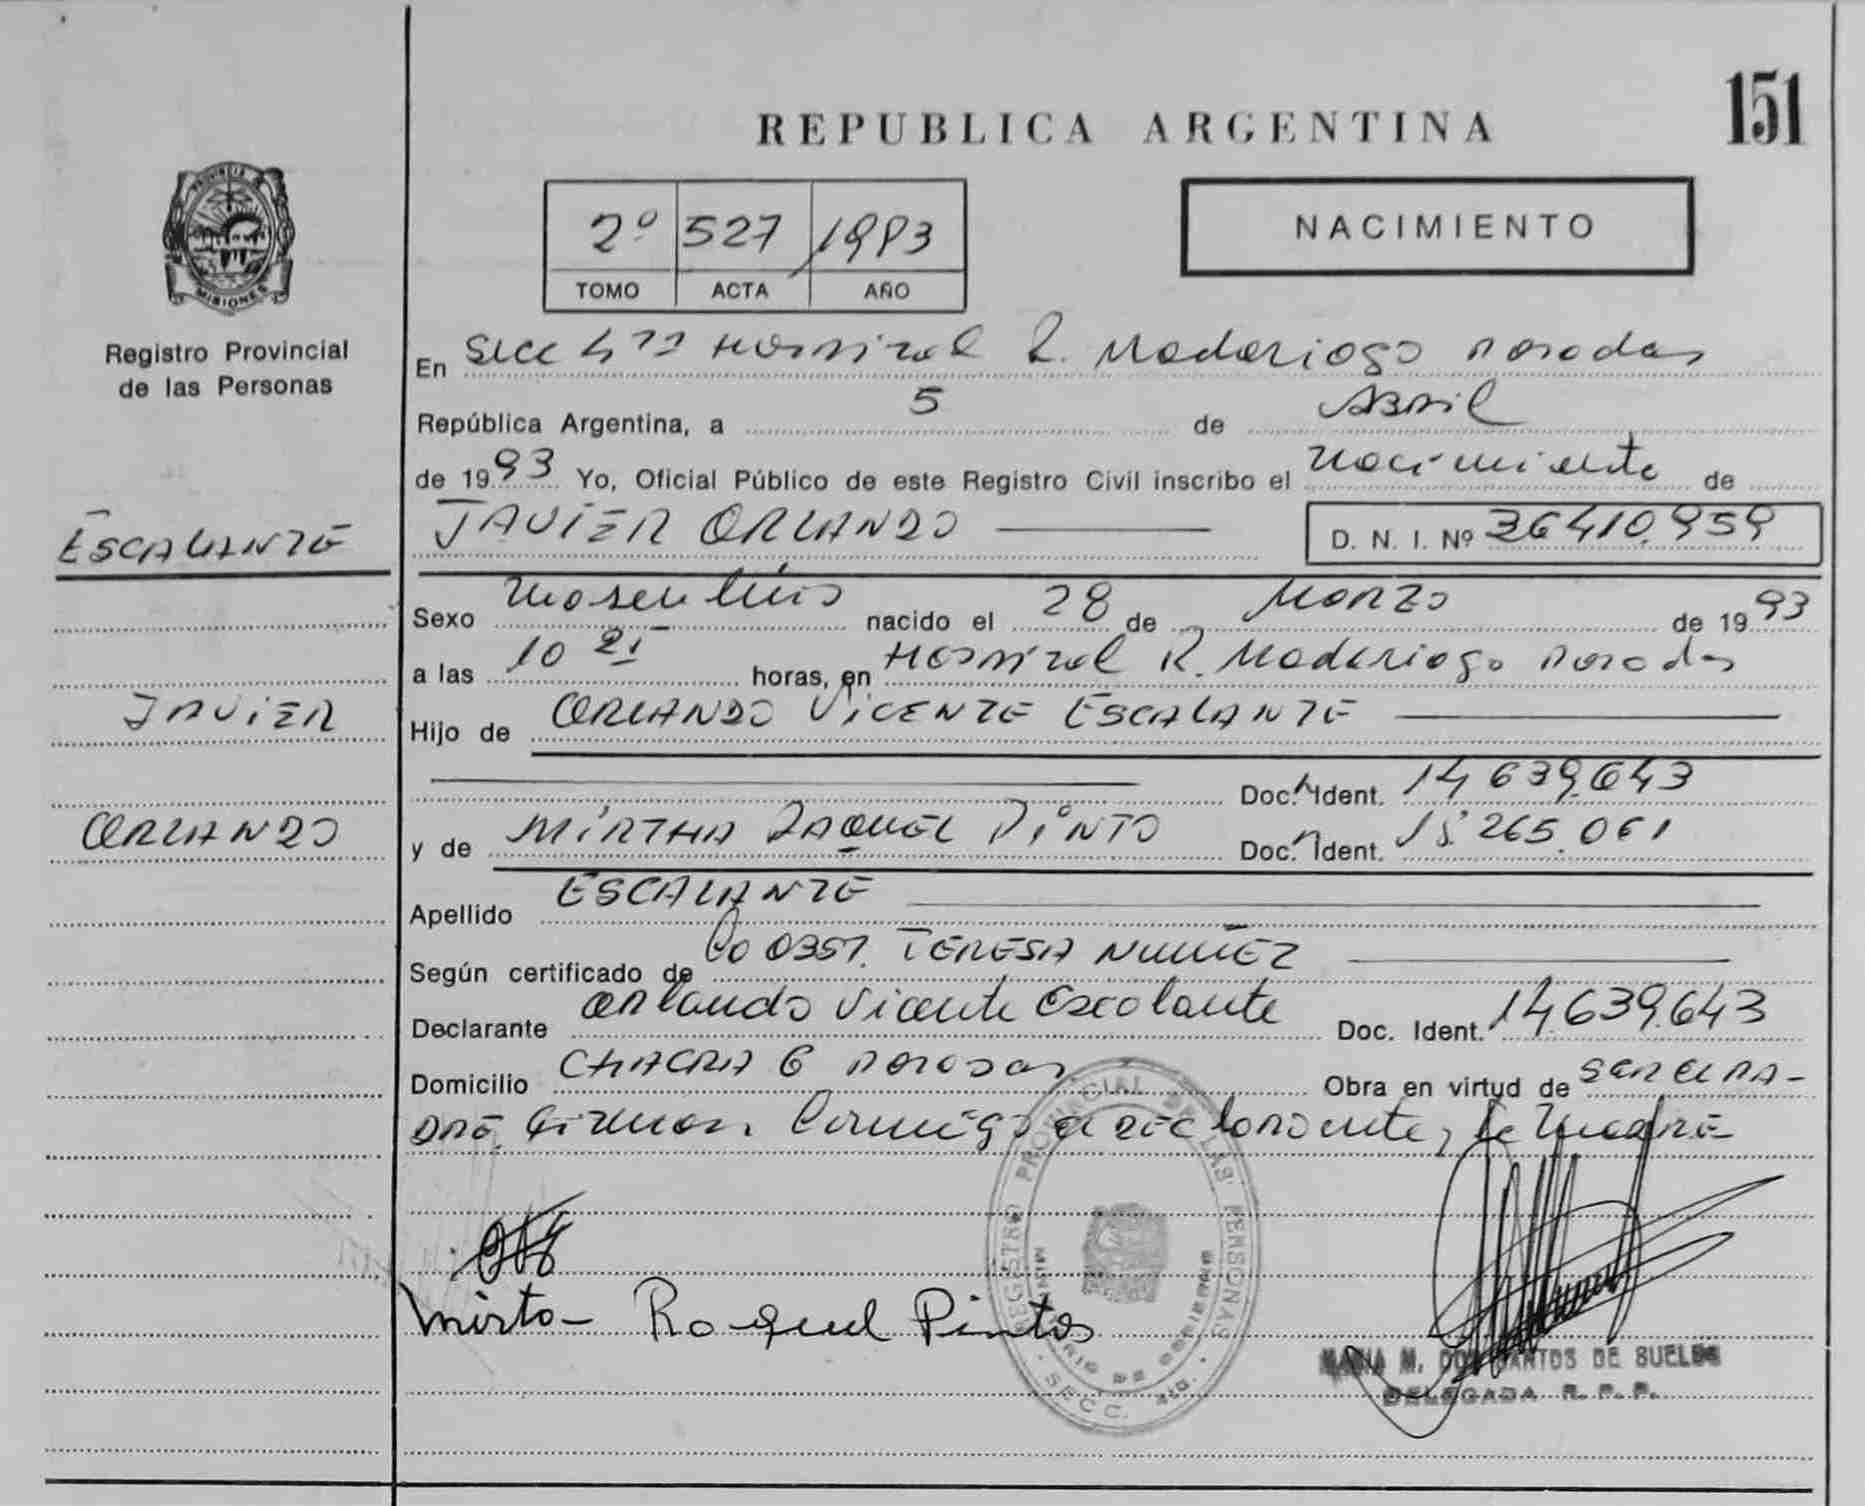 151
REPUBLICA ARGENTINA
PROVINCIA DE
MISIONES
Registro Provincial
de las Personas
2º 527 1993
TOMO ACTA AÑO
NACIMIENTO
En Secc 4ta Hospital R. Madariaga Posadas
República Argentina, a 5 de Abril
de 1993 Yo, Oficial Público de este Registro Civil inscribo el nacimiento de
ESCALANTE
JAVIER ORLANDO
D. N. I. Nº 36410.959
Sexo masculino nacido el 28 de Marzo de 1993
a las 10 21 horas, en Hospital R. Madariaga Posadas
JAVIER
Hijo de ORLANDO VICENTE ESCALANTE
Doc. Ident. 14 639.643
ORLANDO
y de MIRTHA RAQUEL PINTO Doc. Ident. 18.265.061
Apellido ESCALANTE
Según certificado de Obst. TERESA NUÑEZ
Declarante Orlando Vicente Escalante Doc. Ident. 14.639.643
Domicilio CHACRA 6 Posadas Obra en virtud de
Firman Conmigo el declarante, la Madre
Mirta Raquel Pintos
REGISTRO PROVINCIAL DE LAS PERSONAS
MINISTERIO DE GOBIERNO
SECC. 4ta.
MARIA M. DOS SANTOS DE SUELDO
DELEGADA R. P. P.